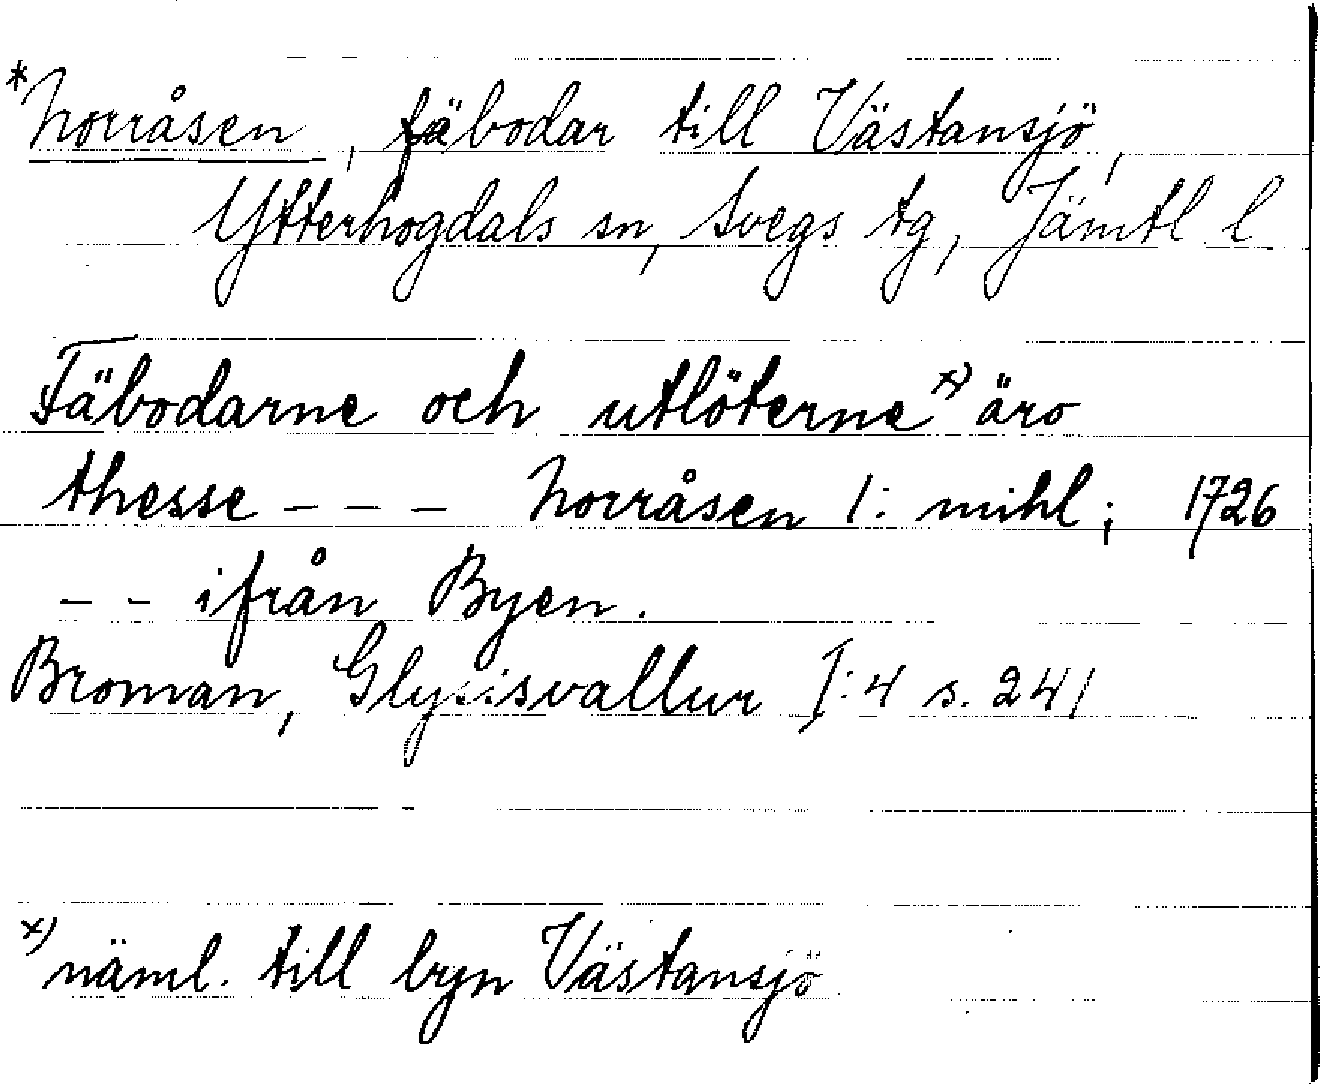 *Norråsen, fäbodar till Västansjö,
Ytterhogdals sn, Svegs tg, Jämtl l
Fäbodarne och utlöterne x) äro
thesse - - - Norråsen 1: mihl; 1726
- - ifrån Byen.
Broman, Glysisvallur I:4 s. 241
x) näml. till byn Västansjö